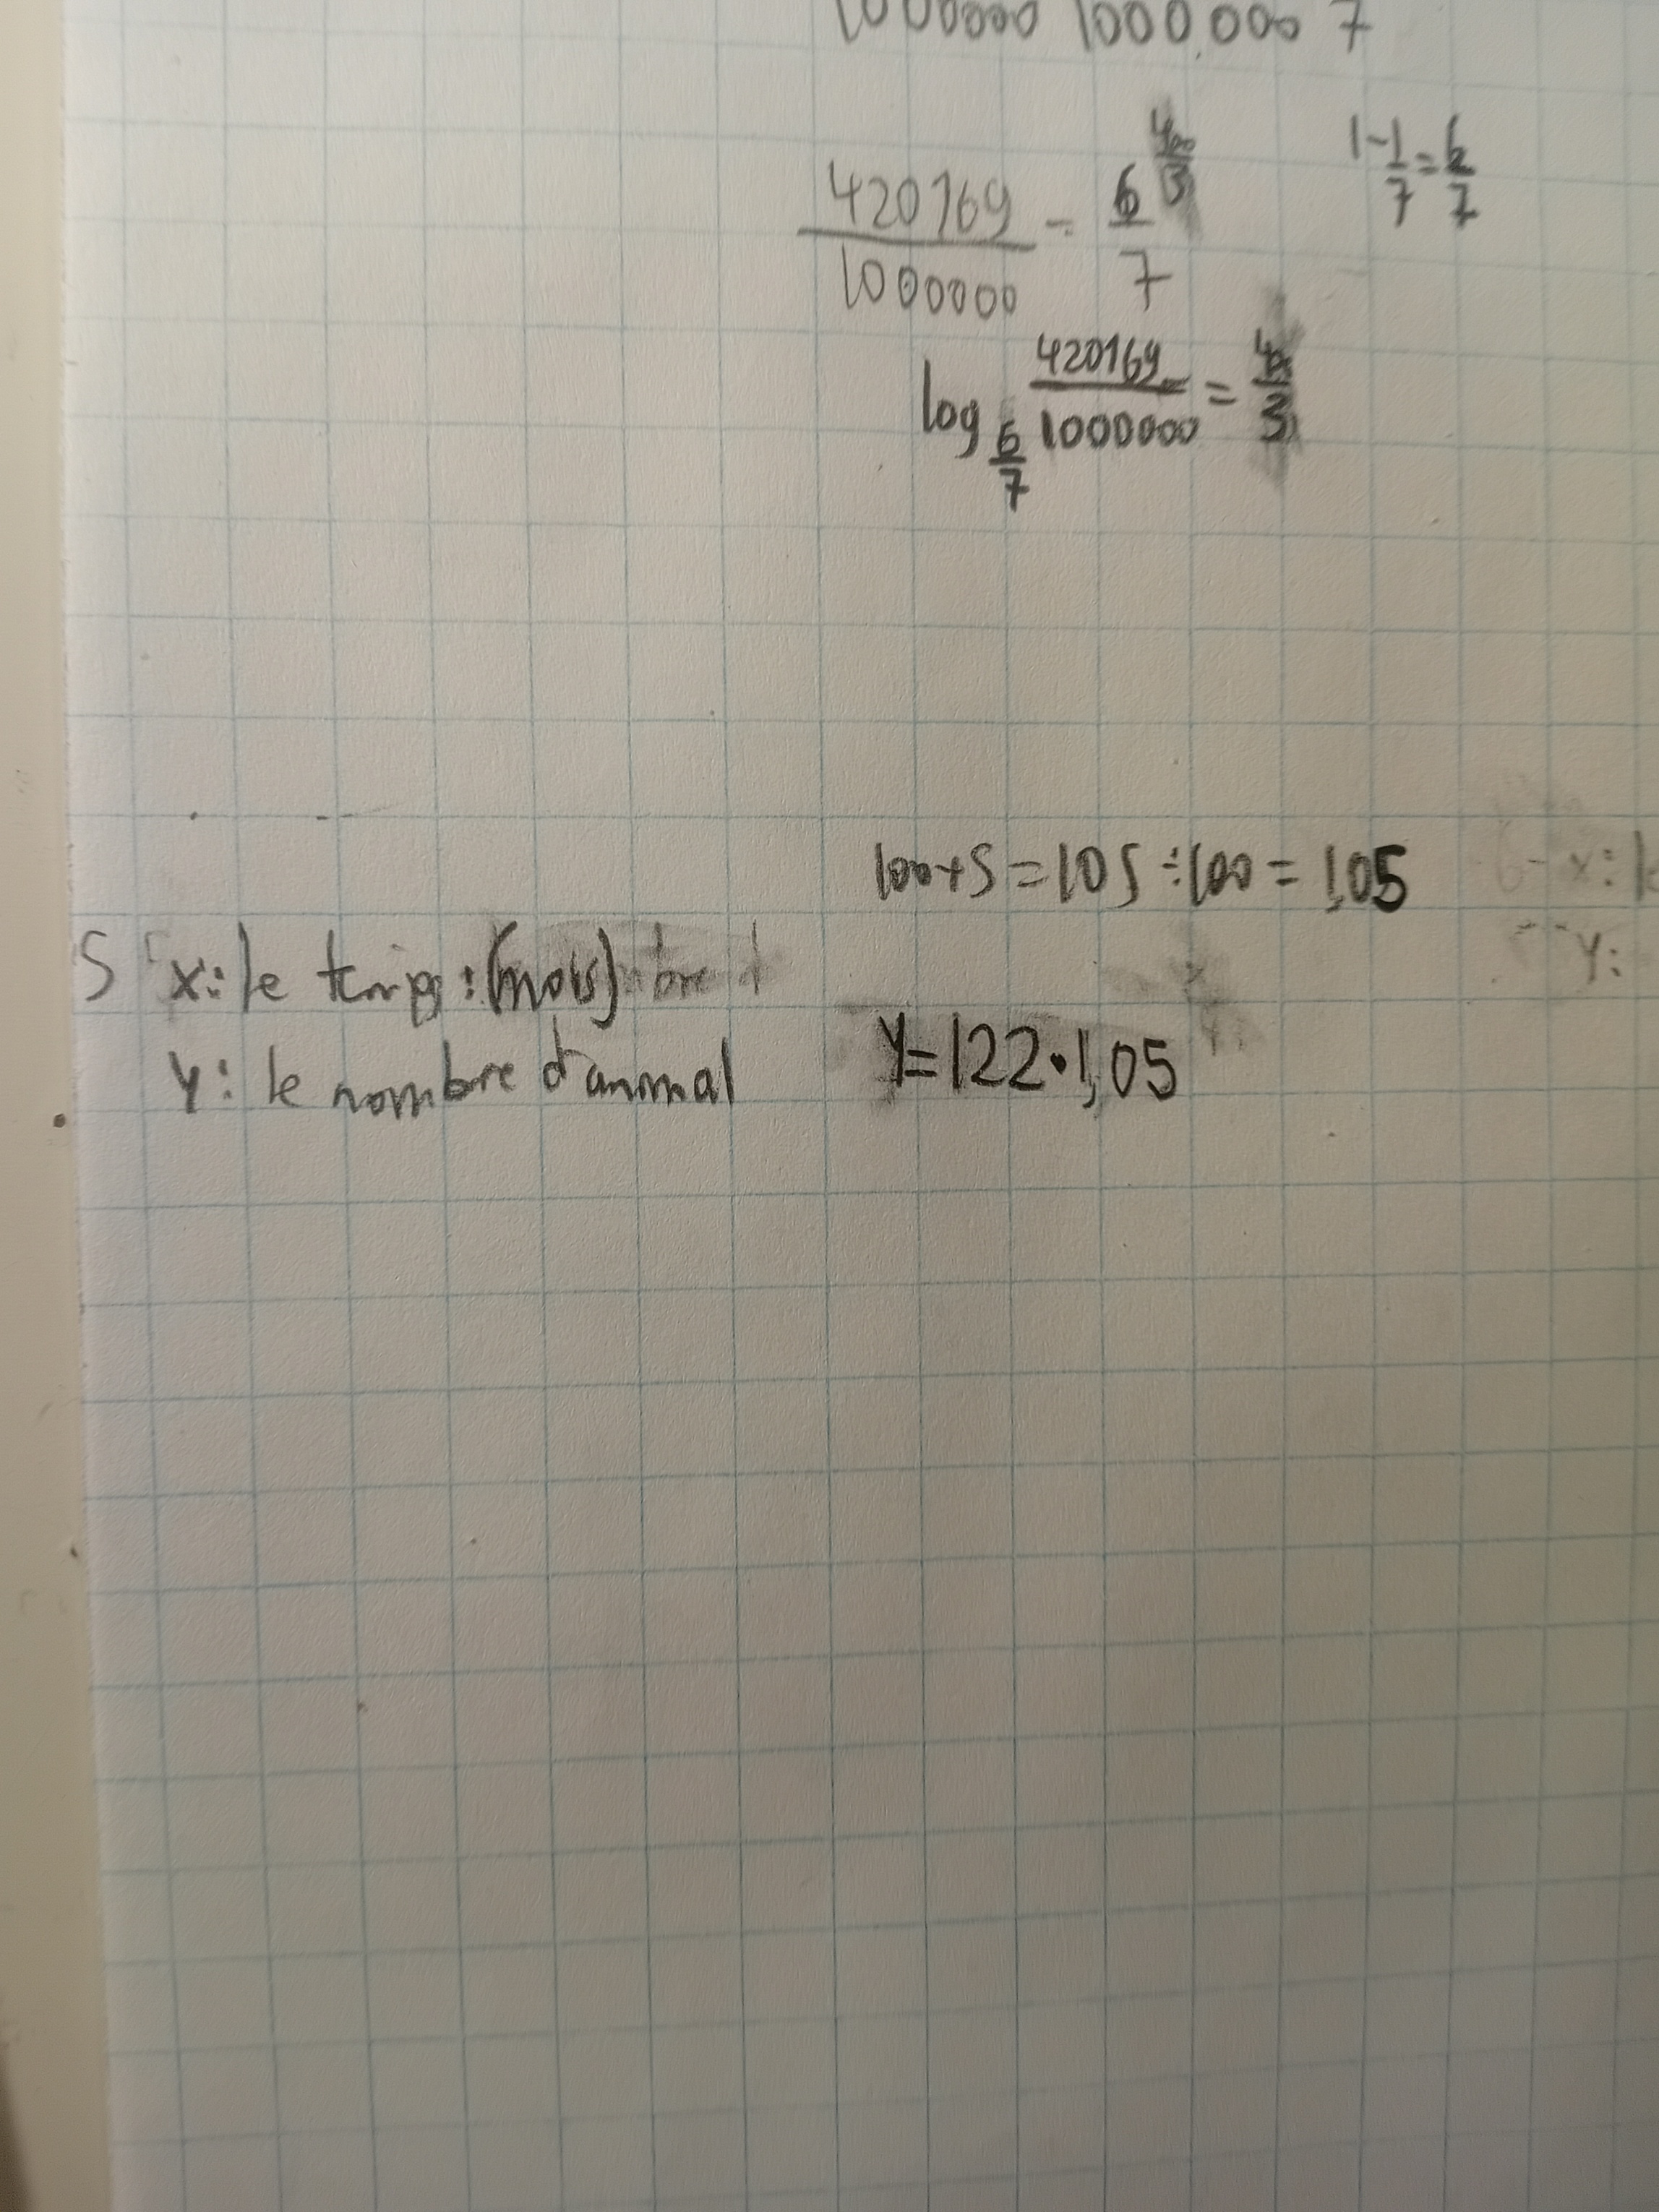 1000000 1000000 7
420169 = 6
1000000 7
1-1/7=6/7
log 6/7 420169/1000000 =
100+5=105÷100=1,05
5 x: le temps: (mois)
y: le nombre d'animal
y=122·1,05
x: l
y: